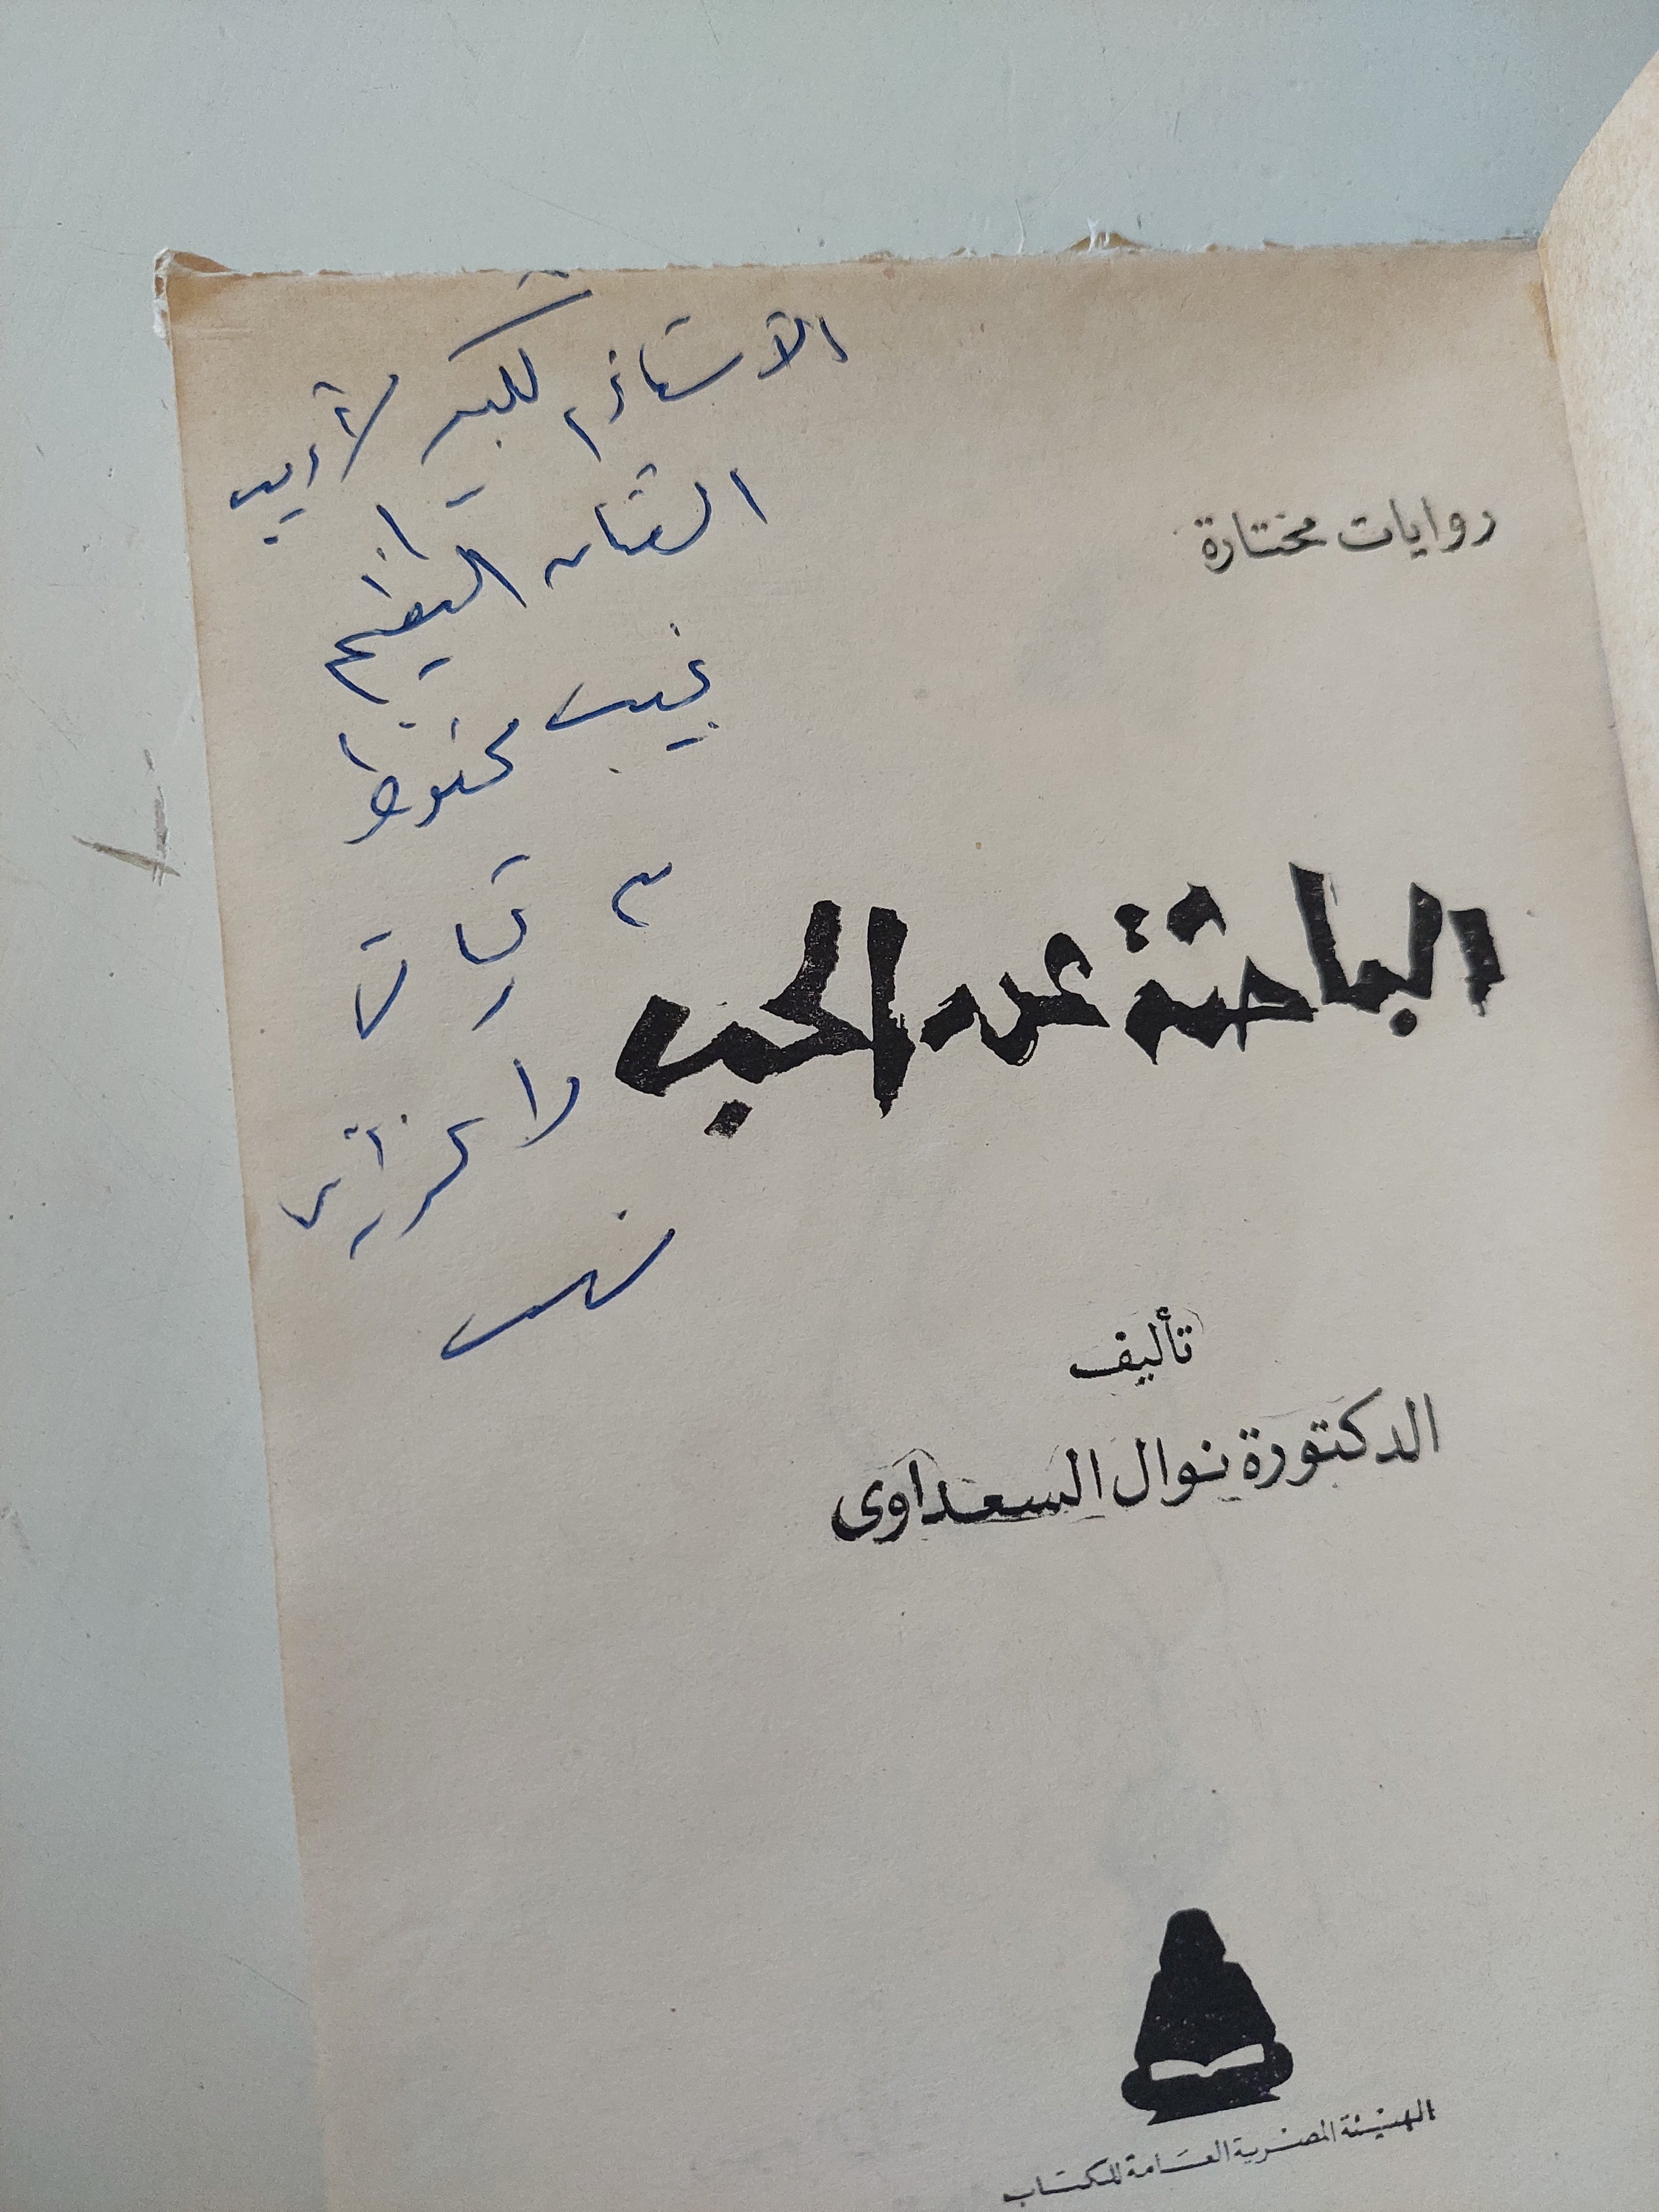 الأستاذ الكبير الأديب
الفنان العظيم
نجيب محفوظ
مع تحيات
واعتزاز
نوال
روايات مختارة
الباحثة عن الحب
تأليف
الدكتورة نوال السعداوى
الهيئة المصرية العامة للكتاب